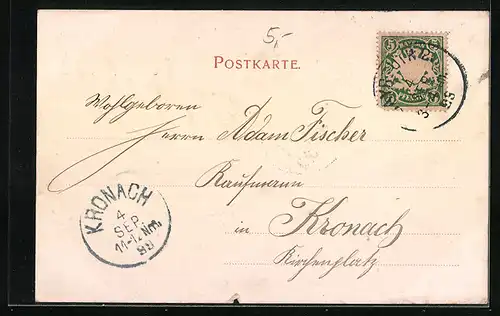 5,-
POSTKARTE.
Wohlgeboren
Herrn Adam Fischer
Kaufmann
in Kronach
Kirchenplatz
KRONACH
4
SEP.